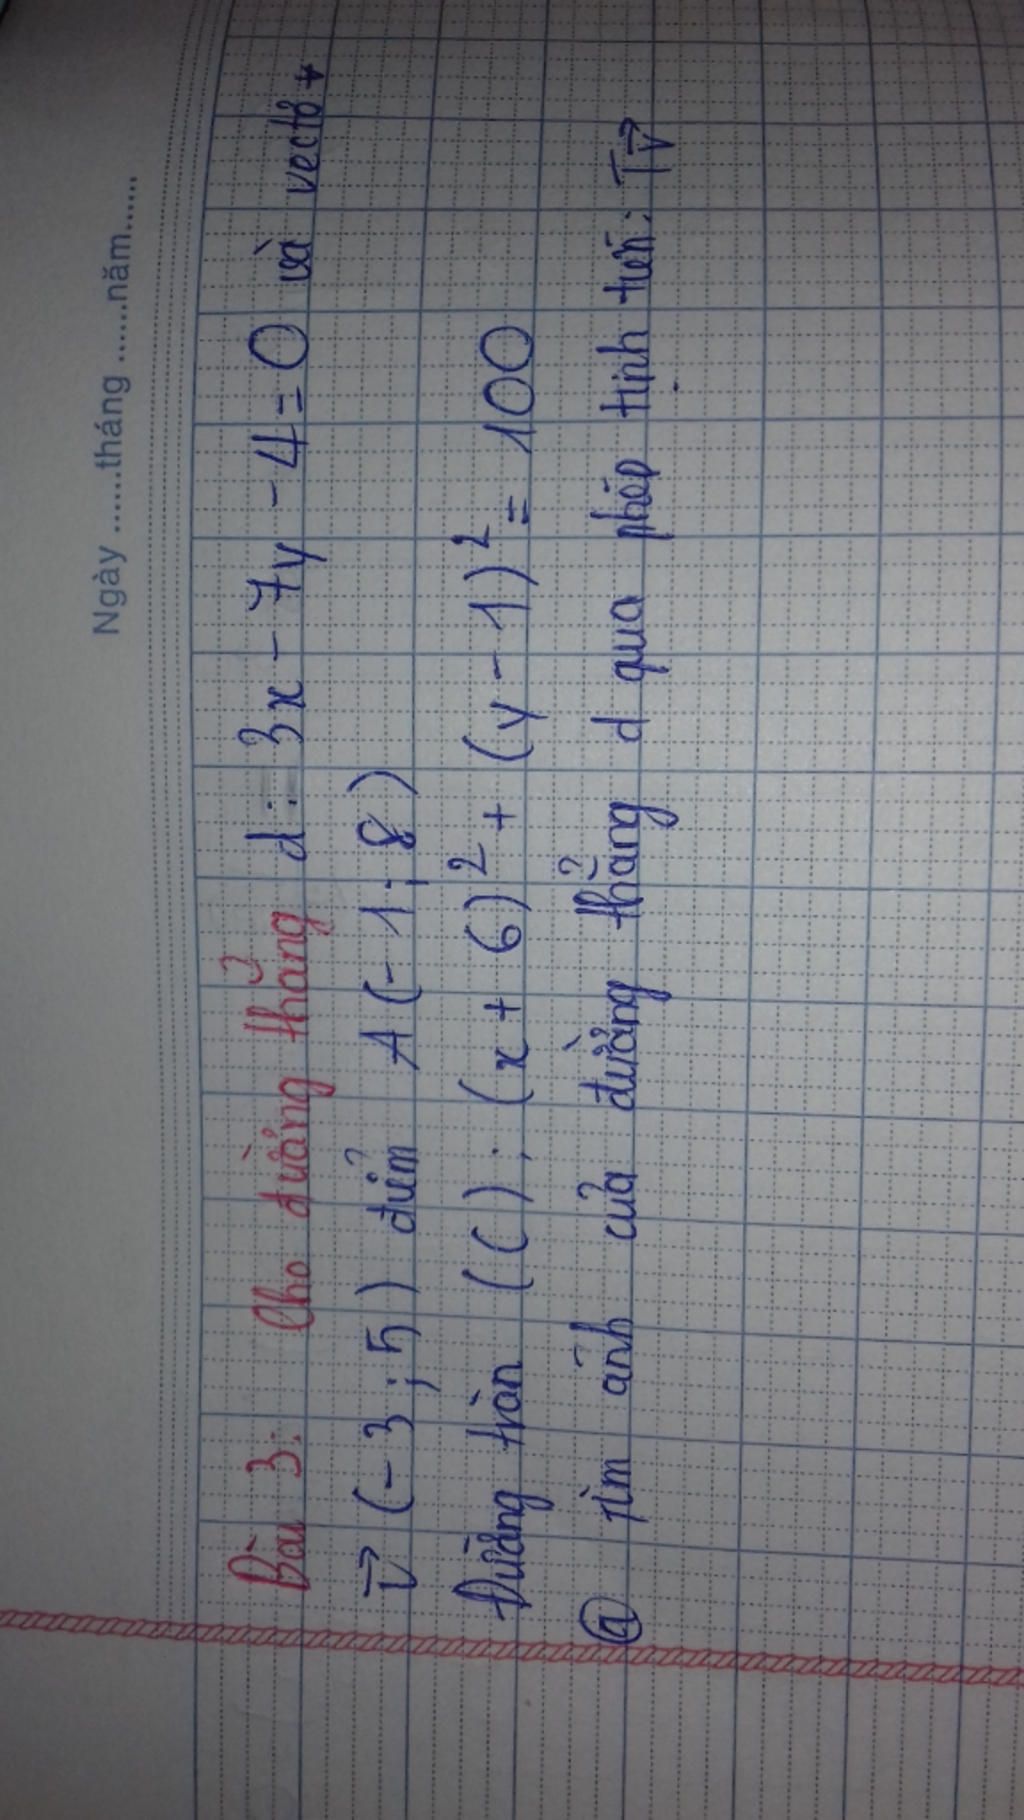 Ngày ......tháng ......năm......
Bài 3: Cho đường thẳng d: 3x - 7y - 4 = 0 và vectơ +
v⃗ (-3; 5) điểm A (-1; 8)
Đường tròn (C): (x + 6)² + (y - 1)² = 100
ⓐ Tìm ảnh của đường thẳng d qua phép tịnh tiến: Tv⃗